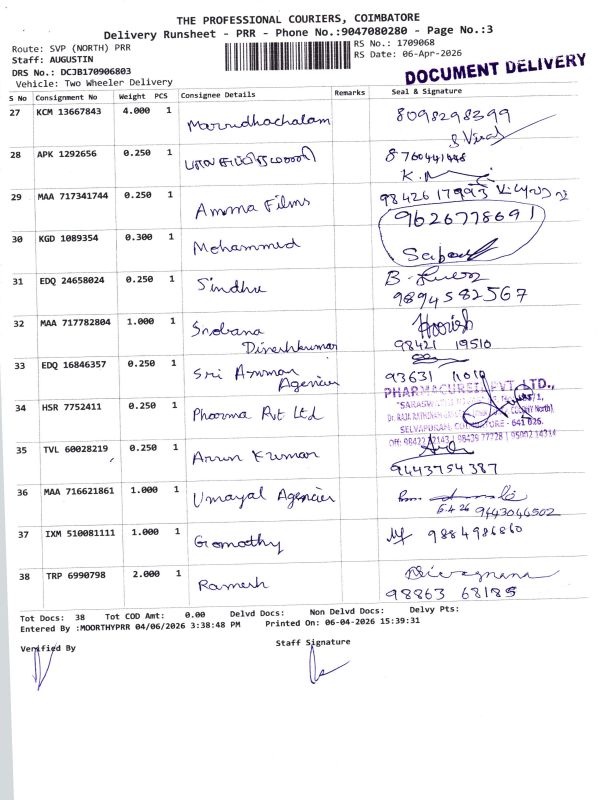 THE PROFESSIONAL COURIERS, COIMBATORE
Delivery Runsheet - PRR - Phone No.:9047080280 - Page No.:3
Route: SVP (NORTH) PRR
RS No.: 1709068
Staff: AUGUSTIN
RS Date: 06-Apr-2026
DRS No.: DCJB170906803
DOCUMENT DELIVERY
Vehicle: Two Wheeler Delivery
S No Consignment No Weight PCS Consignee Details Remarks Seal & Signature
27 KCM 13667843 4.000 1 Marudhachalam 8098298399
28 APK 1292656 0.250 1 8760441448
29 MAA 717341744 0.250 1 Amma Films 98426 17993
30 KGD 1089354 0.300 1 Mohammed 9626778691
31 EDQ 24658024 0.250 1 Sindhu
9894582567
32 MAA 717782804 1.000 1 Sobana
Dineshkumar
98421 19510
33 EDQ 16846357 0.250 1 Sri Amman
Agencies
93631
34 HSR 7752411 0.250 1 Phoorma Pvt Ltd
PHARMACUREIL PVT. LTD.,
SELVAPURAM, COIMBATORE - 641 026.
35 TVL 60028219 0.250 1 Arun Kumar
9443754387
36 MAA 716621861 1.000 1 Umayal Agencies
6.4.26 9443046502
37 IXM 510081111 1.000 1 Gomathy 9884986860
38 TRP 6990798 2.000 1 Ramesh
98863 68185
Tot Docs: 38 Tot COD Amt: 0.00 Delvd Docs: Non Delvd Docs: Delvy Pts:
Entered By :MOORTHYPRR 04/06/2026 3:38:48 PM Printed On: 06-04-2026 15:39:31
Verified By
Staff Signature